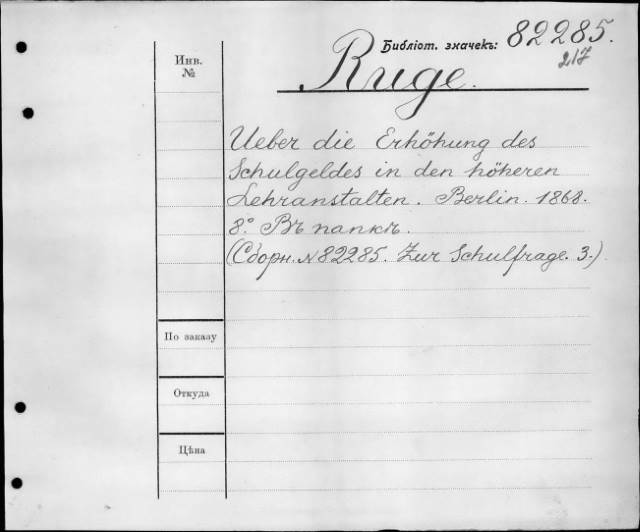 Библіот. значекъ: 82285.
217
Инв.
№
Ruge.
Ueber die Erhöhung des
Schulgeldes in den höheren
Lehranstalten. Berlin. 1868.
8º. Въ папкѣ.
(Сборн. № 82285. Zur Schulfrage. 3.)
По заказу
Откуда
Цѣна